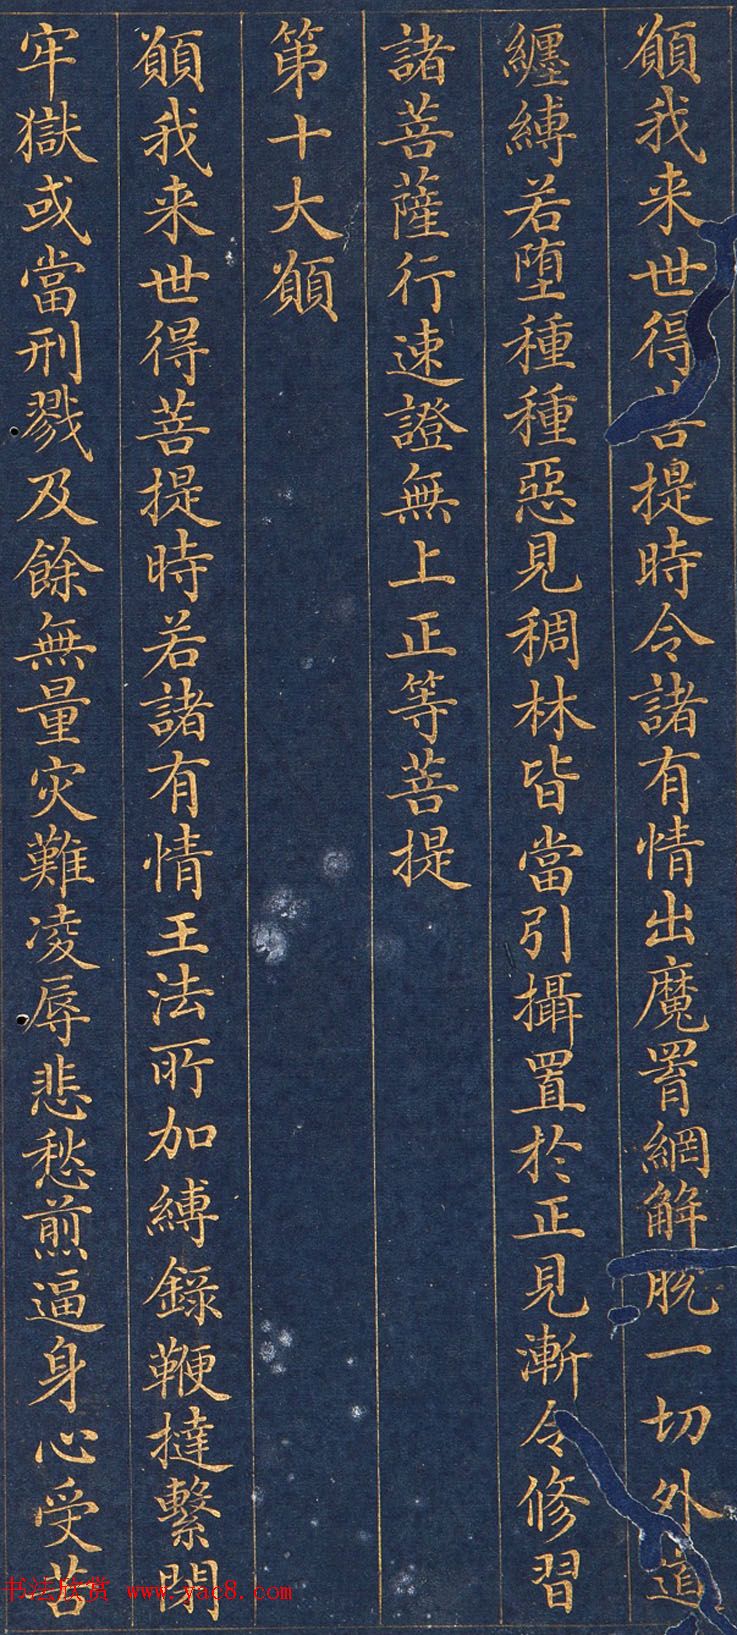 願我来世得菩提時令諸有情出魔罥網解脱一切外道
纏縛若堕種種惡見稠林皆當引攝置於正見漸令修習
諸菩薩行速證無上正等菩提
第十大願
願我来世得菩提時若諸有情王法所加縛錄鞭撻繫閉
牢獄或當刑戮及餘無量灾難凌辱悲愁煎逼身心受苦
书法欣赏 www.yac8.com